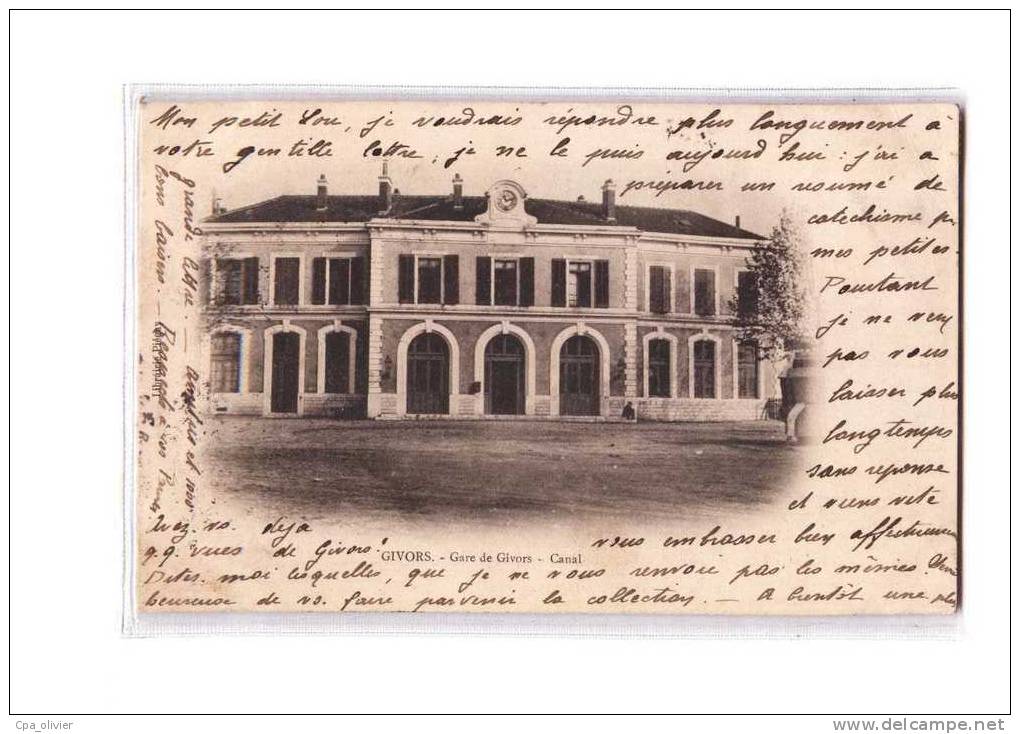 Mon petit Lou, je voudrais répondre plus longuement à
votre gentille lettre, je ne le puis aujourd'hui : j'ai a
préparer un resumé de
catechisme pr
mes petites.
Pourtant
je ne veux
pas vous
laisser plus
longtemps
sans reponse
et viens vite
vous embrasser bien affectueusement
Avez. vs. deja
q.q. vues de Givors?
Dites. moi lesquelles, que je ne vous renvoie pas les mêmes.
heureuse de vs. faire parvenir la collection. — A bientôt une plus
grande lettre. — Amitiés et nos
bons baisers. — à vos
GIVORS. - Gare de Givors - Canal
Cpa_olivier
www.delcampe.net